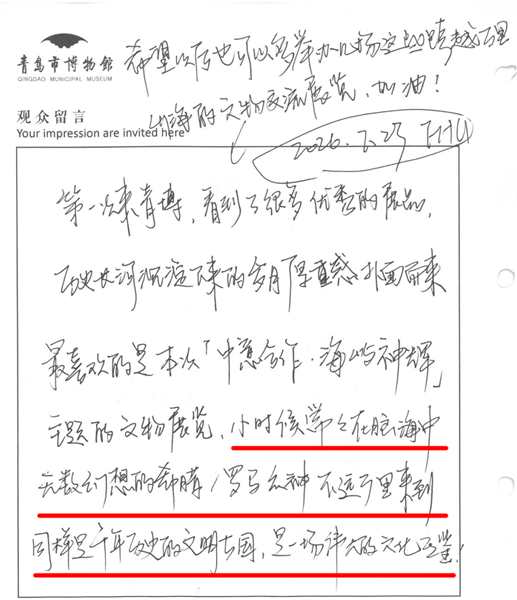 青岛市博物馆
QINGDAO MUNICIPAL MUSEUM
观众留言
Your impression are invited here
希望以后也可以多举办几场这些跨越万里
山海的文物交流展览,加油!
2026.7.23
第一次来青博,看到了很多优秀的展品,
历史长河沉淀下来的岁月厚重感扑面而来
最喜欢的是本次「中意合作·海屿神辉」
主题的文物展览,小时候常常在脑海中
无数幻想的希腊/罗马众神不远万里来到
同样是千年历史的文明古国,是一场评久的文化